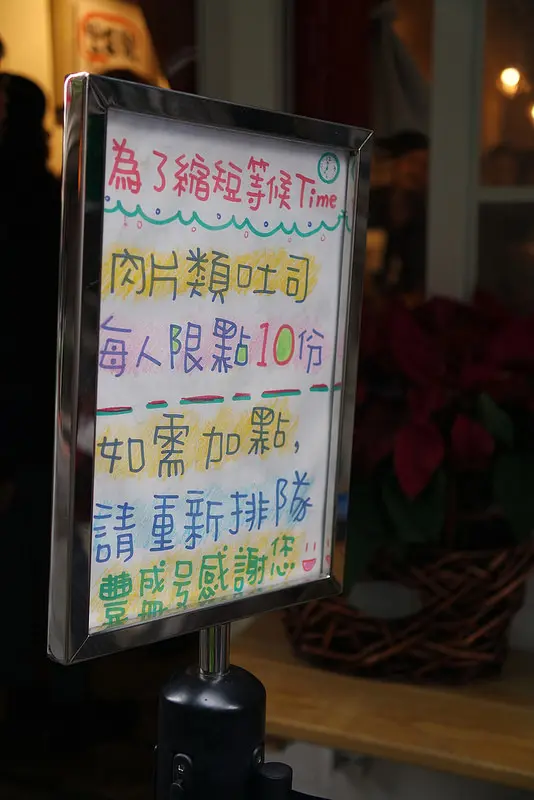 為了縮短等候Time
肉片類吐司
每人限點10份
如需加點,
請重新排隊
豐盛号感謝您